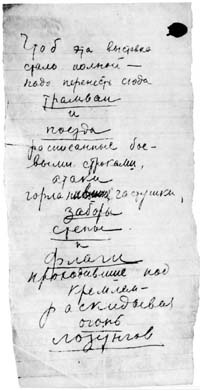 Чтоб эта выставка
стала полной —
надо перенесть сюда
трамваи
и
поезда
расписанные бое-
выми строками,
атаки
горланивших частушки,
заборы
стены
и
флаги
проходившие под
Кремлем —
раскидывая
огонь
лозунгов